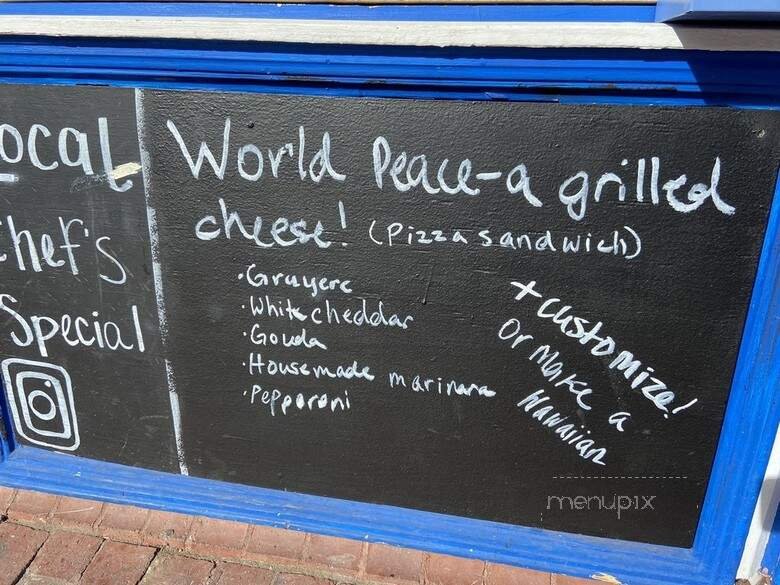 ocal
hef's
Special
World Peace-a grilled
cheese! (Pizza sandwich)
·Gruyere
·White cheddar
·Gouda
·Housemade marinara
·Pepperoni
+ customize!
Or Make a
Hawaiian
menupix